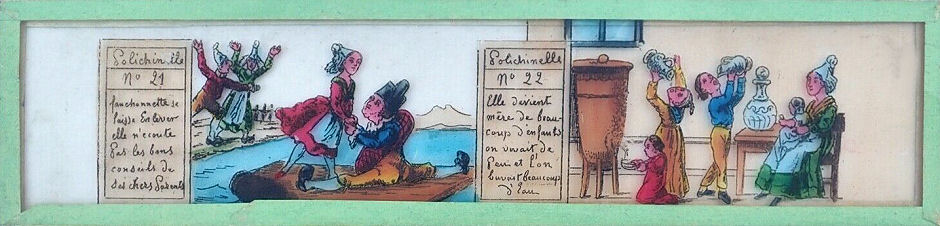 Polichinelle
Nº 21
fanchonnette se
laisse Enlever
elle n'ecoute
pas les bons
conseils de
ses chers Parents
Polichinelle
Nº 22
Elle devient
mère de beau-
coup d'enfants
on vivait de
Peu et l'on
buvait beaucoup
d'Eau